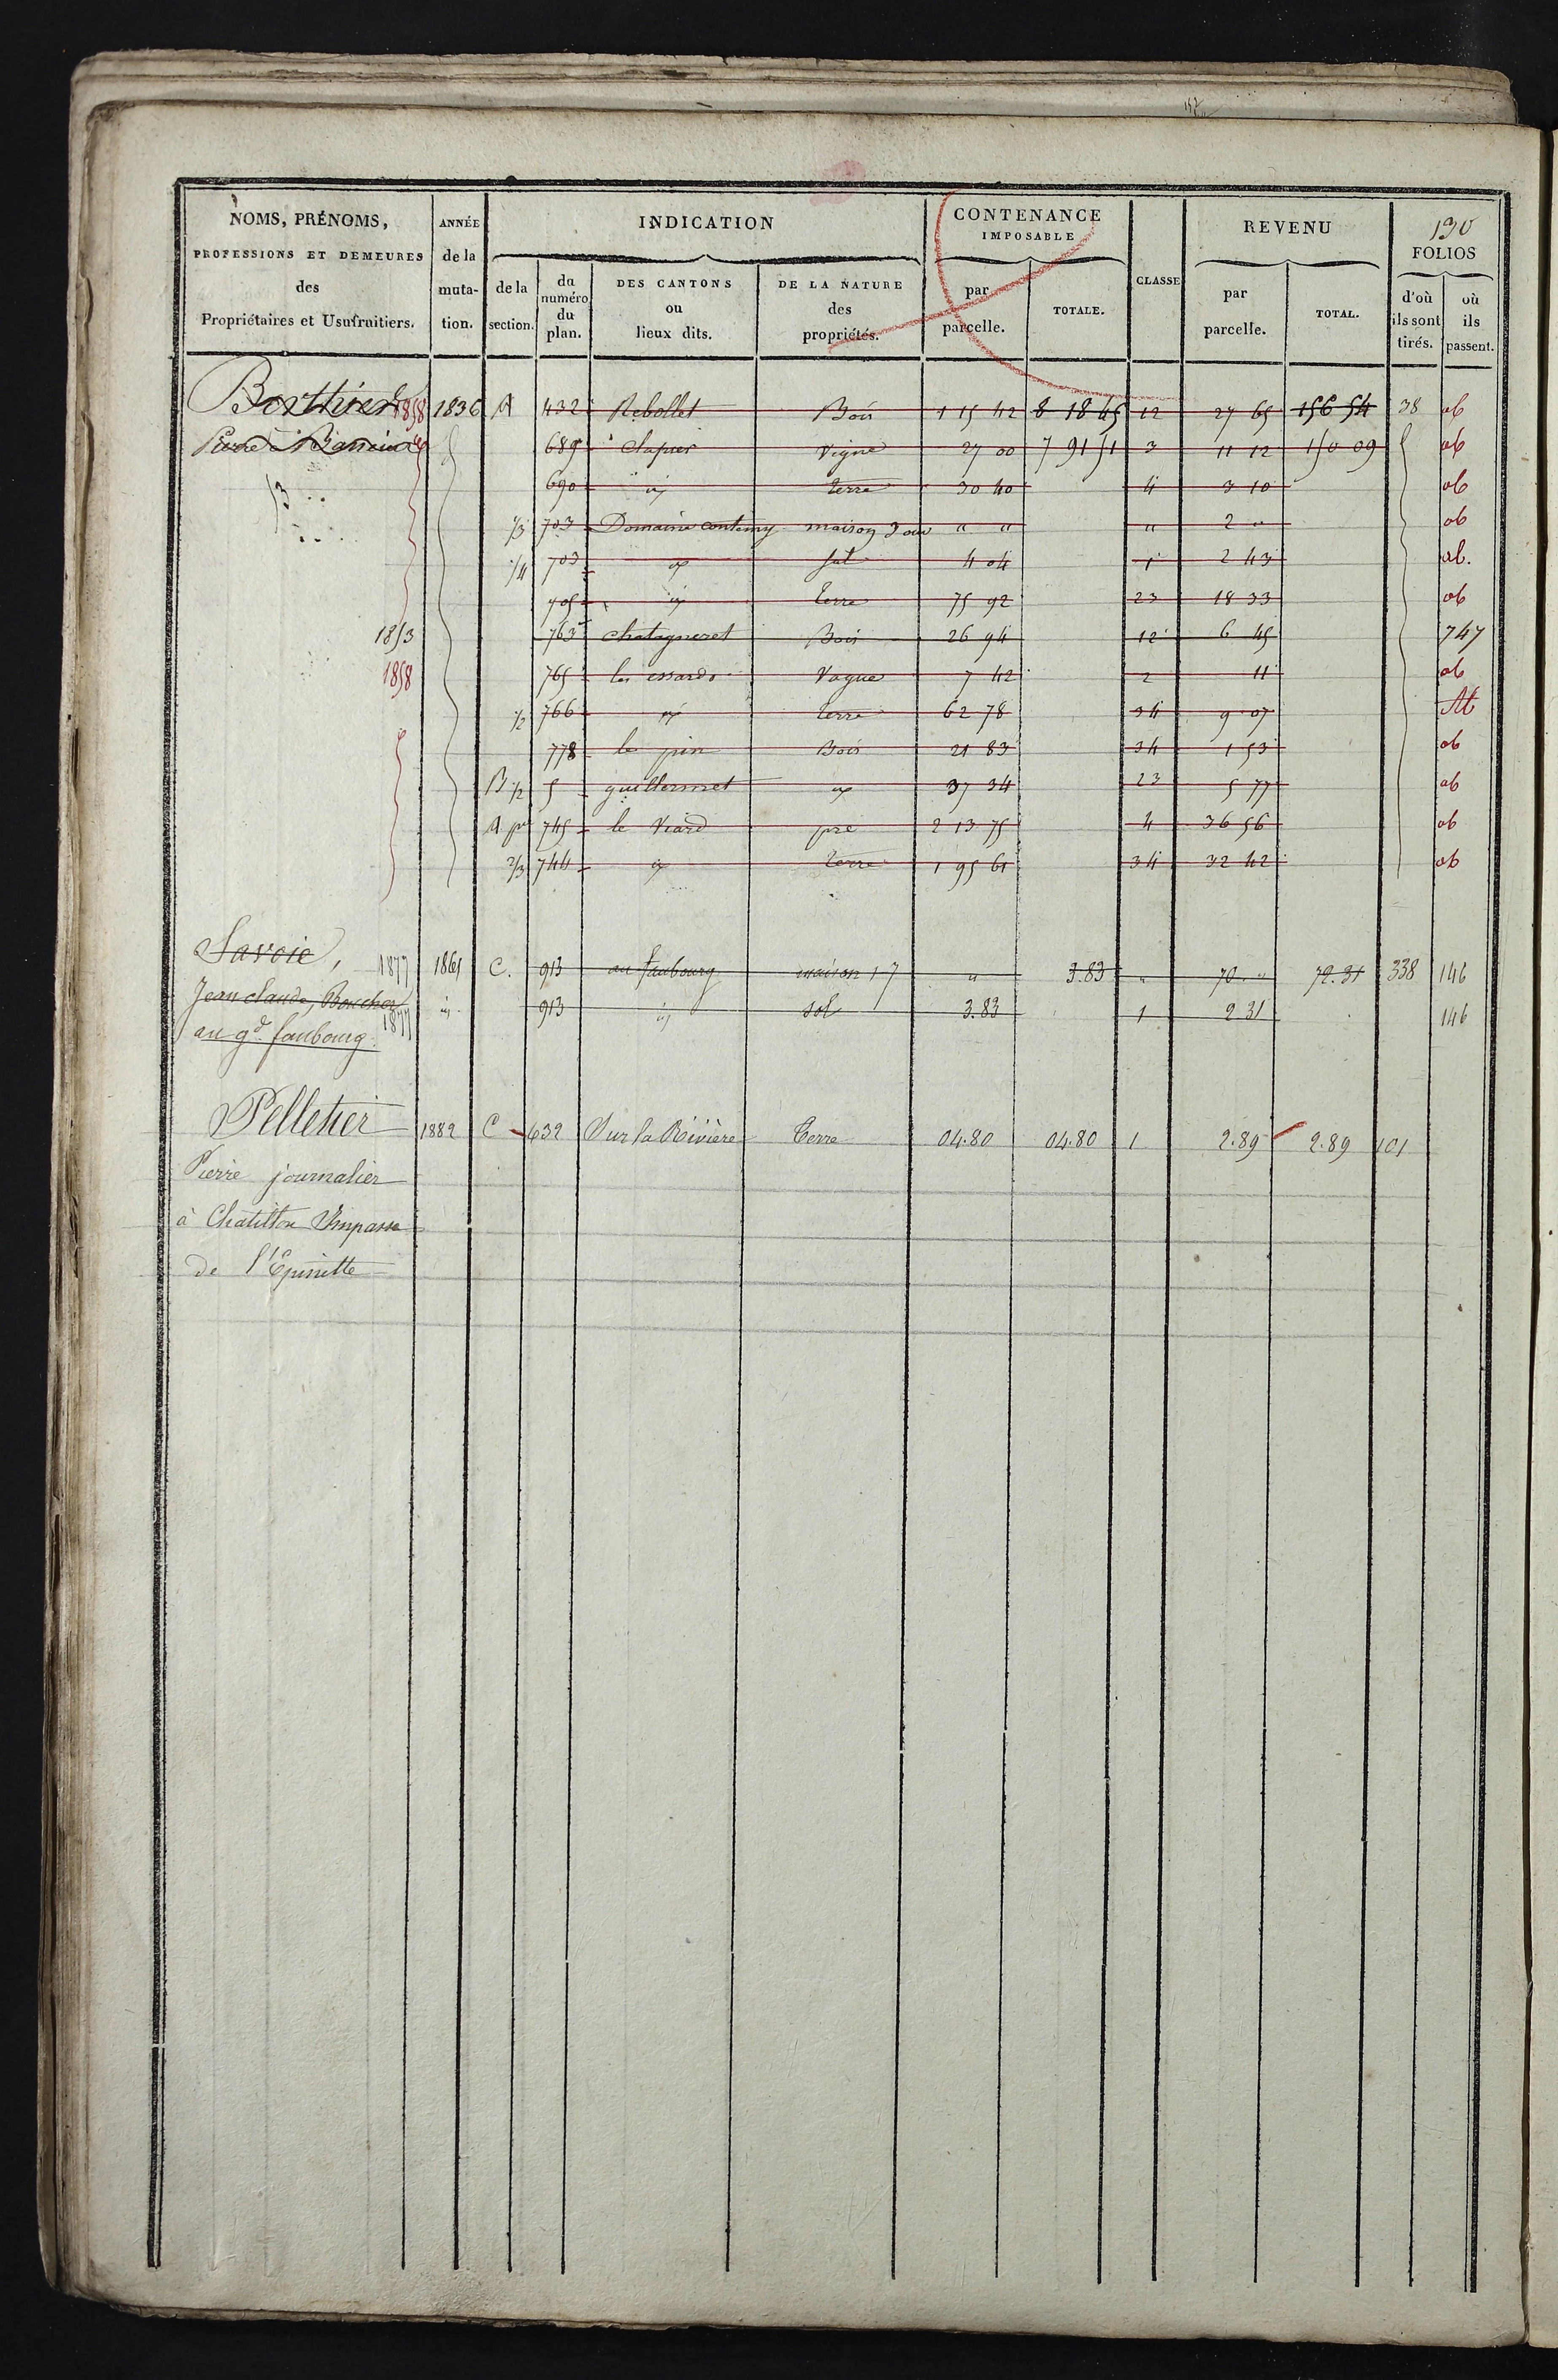 130
NOMS, PRÉNOMS, PROFESSIONS ET DEMEURES des Propriétaires et Usufruitiers.
ANNÉE de la muta-tion.
INDICATION
de la section.
du numéro du plan.
DES CANTONS ou lieux dits.
DE LA NATURE des propriétés.
CONTENANCE IMPOSABLE
par parcelle.
TOTALE.
CLASSE
REVENU
par parcelle.
TOTAL.
FOLIOS
d'où ils sont tirés.
où ils passent.
Berthier 1858 1836 A 432 Rebollet Bois 1 15 42 8 18 45 12 27 65 156 54 38 ab
Pierre à 689 Clapier Vigne 27 00 7 91 51 3 11 12 150 09 ab
690 id terre 30 40 4 3 10 ab
1/3 703 Domaine contemy maison 3 ouv " " " 2 " ab
1/4 703 id sol 4 04 1 2 43 ab.
705 id terre 75 92 23 18 33 ab
1853 763 chatagneret Bois 26 94 12 6 45 747
1858 765 les essards Vague 7 42 2 11 ab
1/2 766 id terre 62 78 34 9 07 ab
778 le pin Bois 21 83 34 1 53 ab
B 1/2 5 guillermet id 37 34 23 5 77 ab
A pie 745 le Viard pré 2 13 75 4 36 56 ab
2/3 744 id terre 1 95 61 34 32 42 ab
Savoie, 1877 1861 C. 913 au faubourg maison 17 " 3.83 " 70. " 72.31 338 146
Jean claude, Boucher 1877 id 913 id sol 3.83 1 2 31 146
au gd. faubourg.
Pelletier 1882 C 632 Sur la Rivière Terre 04.80 04.80 1 2.89 2.89 101
Pierre journalier
à Chatillon Impasse
de l'Epinette